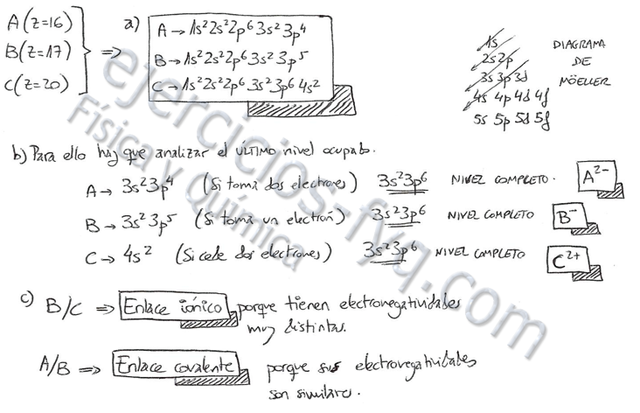 A(z=16)
B(z=17)
C(z=20)
⇒ a)
A → 1s²2s²2p⁶3s²3p⁴
B → 1s²2s²2p⁶3s²3p⁵
C → 1s²2s²2p⁶3s²3p⁶4s²
1s
2s2p
3s 3p 3d
4s 4p 4d 4f
5s 5p 5d 5f
DIAGRAMA
DE
MÖELLER
b) Para ello hay que analizar el ÚLTIMO nivel ocupado.
A → 3s²3p⁴ (Si toma dos electrones) 3s²3p⁶ NIVEL COMPLETO. A²⁻
B → 3s²3p⁵ (Si toma un electrón) 3s²3p⁶ NIVEL COMPLETO B⁻
C → 4s² (Si cede dos electrones) 3s²3p⁶ NIVEL COMPLETO C²⁺
c) B/C ⇒ Enlace iónico porque tienen electronegatividades
muy distintas.
A/B ⇒ Enlace covalente porque sus electronegatividades
son similares.
ejercicios-fyq.com
Física y Química